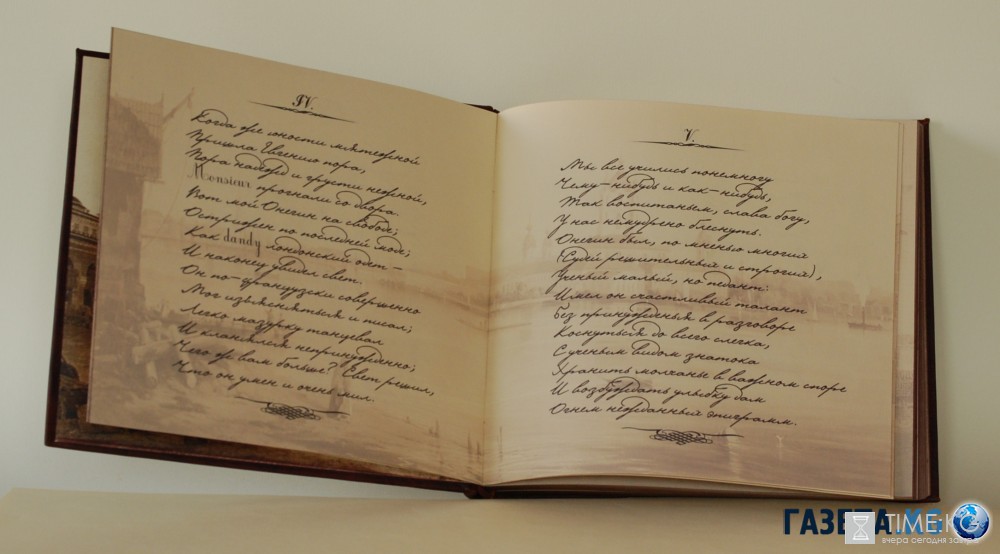 IV.
Когда же юности мятежной
Пришла Евгению пора,
Пора надежд и грусти нежной,
Monsieur прогнали со двора.
Вот мой Онегин на свободе;
Острижен по последней моде;
Как dandy лондонский одет —
И наконец увидел свет.
Он по-французски совершенно
Мог изъясняться и писал;
Легко мазурку танцевал
И кланялся непринужденно;
Чего ж вам больше? Свет решил,
Что он умен и очень мил.
V.
Мы все учились понемногу
Чему-нибудь и как-нибудь,
Так воспитаньем, слава богу,
У нас немудрено блеснуть.
Онегин был, по мненью многих
(Судей решительных и строгих),
Ученый малый, но педант:
Имел он счастливый талант
Без принужденья в разговоре
Коснуться до всего слегка,
С ученым видом знатока
Хранить молчанье в важном споре
И возбуждать улыбку дам
Огнем нежданных эпиграмм.
ГАЗЕТА.KG
TIME.K
вчера сегодня завтра